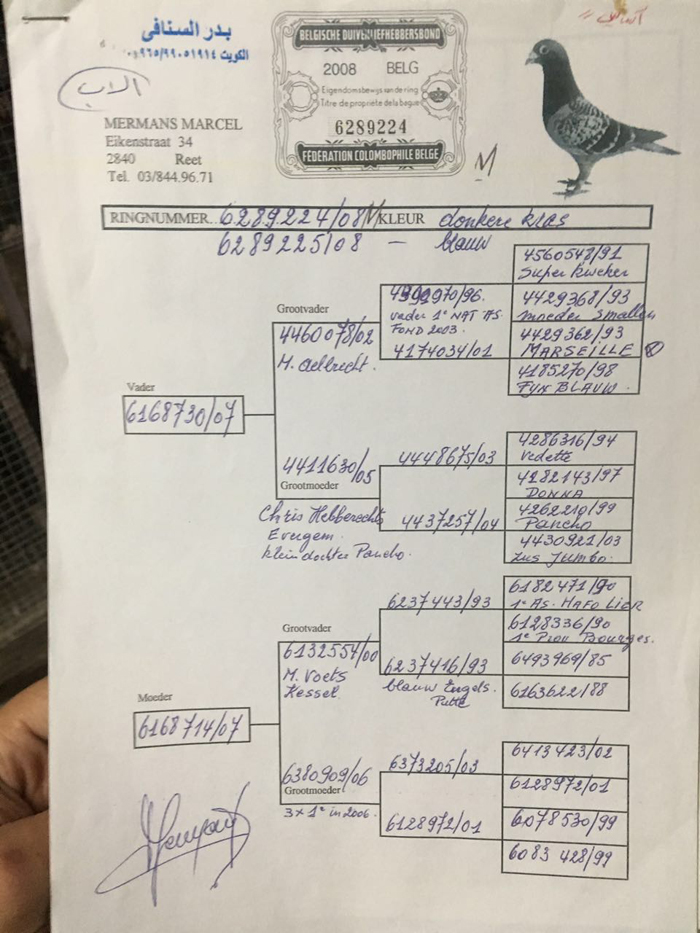 بدر السنافي
الكويت ٠٠٩٦٥/٩٩٠٥١٩١٤
الاب
BELGISCHE DUIVENLIEFHEBBERSBOND
2008 BELG
Eigendomsbewijs van de ring
Titre de propriété de la bague
6289224
FÉDÉRATION COLOMBOPHILE BELGE
M
MERMANS MARCEL
Eikenstraat 34
2840 Reet
Tel. 03/844.96.71
RINGNUMMER.. 6289224/08 M KLEUR donkere kras
6289225/08 — blauw
4560548/91
Super kweker
4429368/93
moeder Smallen
4429362/93
MARSEILLE
4185270/98
FYN BLAUW.
970/96.
vader 1e NAT AS.
FOND 2003.
4174034/01
Grootvader
4460078/02
M. Aelbrecht.
Vader
6168730/07
4411630/05
Grootmoeder
Chris Hebberecht
Evergem.
kleindochter Pancho.
4448675/03
4437257/04
4286316/94
Vedette
4282143/97
DONNA
4262210/99
Pancho
4430921/03
Zus Jumbo.
Grootvader
6132554/00
M. Voets
Kessel.
6237443/93
6237416/93
blauw Engels.
Putte
6182471/90
1e AS. HAFO LIER
6128336/90
1e Prov Bourges.
6493969/85
6163622/88
Moeder
6168714/07
6380909/06
Grootmoeder
3x 1e in 2006.
6373205/03
6128972/01
6413423/02
6128972/01
6078530/99
6083428/99